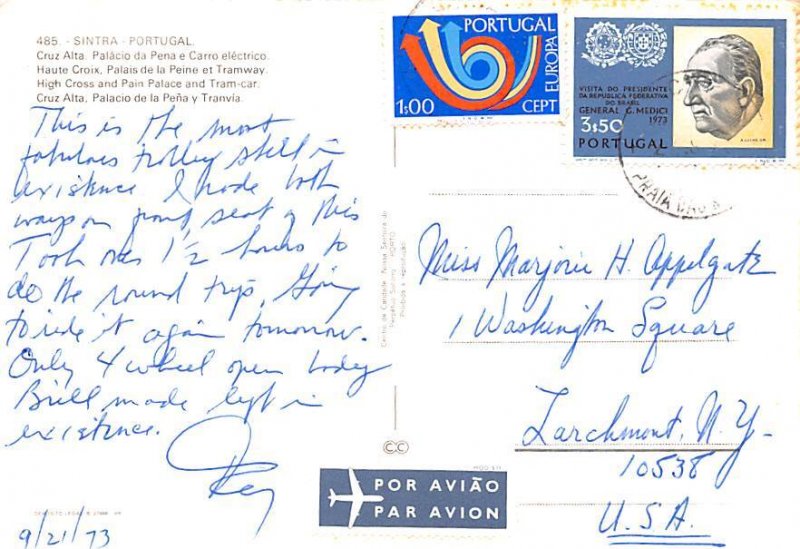 485. - SINTRA - PORTUGAL.
Cruz Alta. Palácio da Pena e Carro eléctrico.
Haute Croix, Palais de la Peine et Tramway.
High Cross and Pain Palace and Tram-car.
Cruz Alta, Palacio de la Peña y Tranvía.
This is the most
fabulous trolley still in
existence I rode both
ways on front seat of this
Took over 1 1/2 hours to
do the round trip, Going
to ride it again tomorrow.
Only 4 wheel open body
Brill made left in
existence.
Rey
9/21/73
PORTUGAL
EUROPA
1$00
CEPT
VISITA DO PRESIDENTE
DA REPUBLICA FEDERATIVA
DO BRASIL
GENERAL G. MEDICI
1973
3$50
PORTUGAL
PRAIA DAS
Centro de Caridade Nossa Senhora do
Perpétuo Socorro PORTO
Proibida a reprodução
Miss Marjorie H. Appelgate
1 Washington Square
Larchmont, N.Y.
10538
U.S.A.
CC
POR AVIÃO
PAR AVION